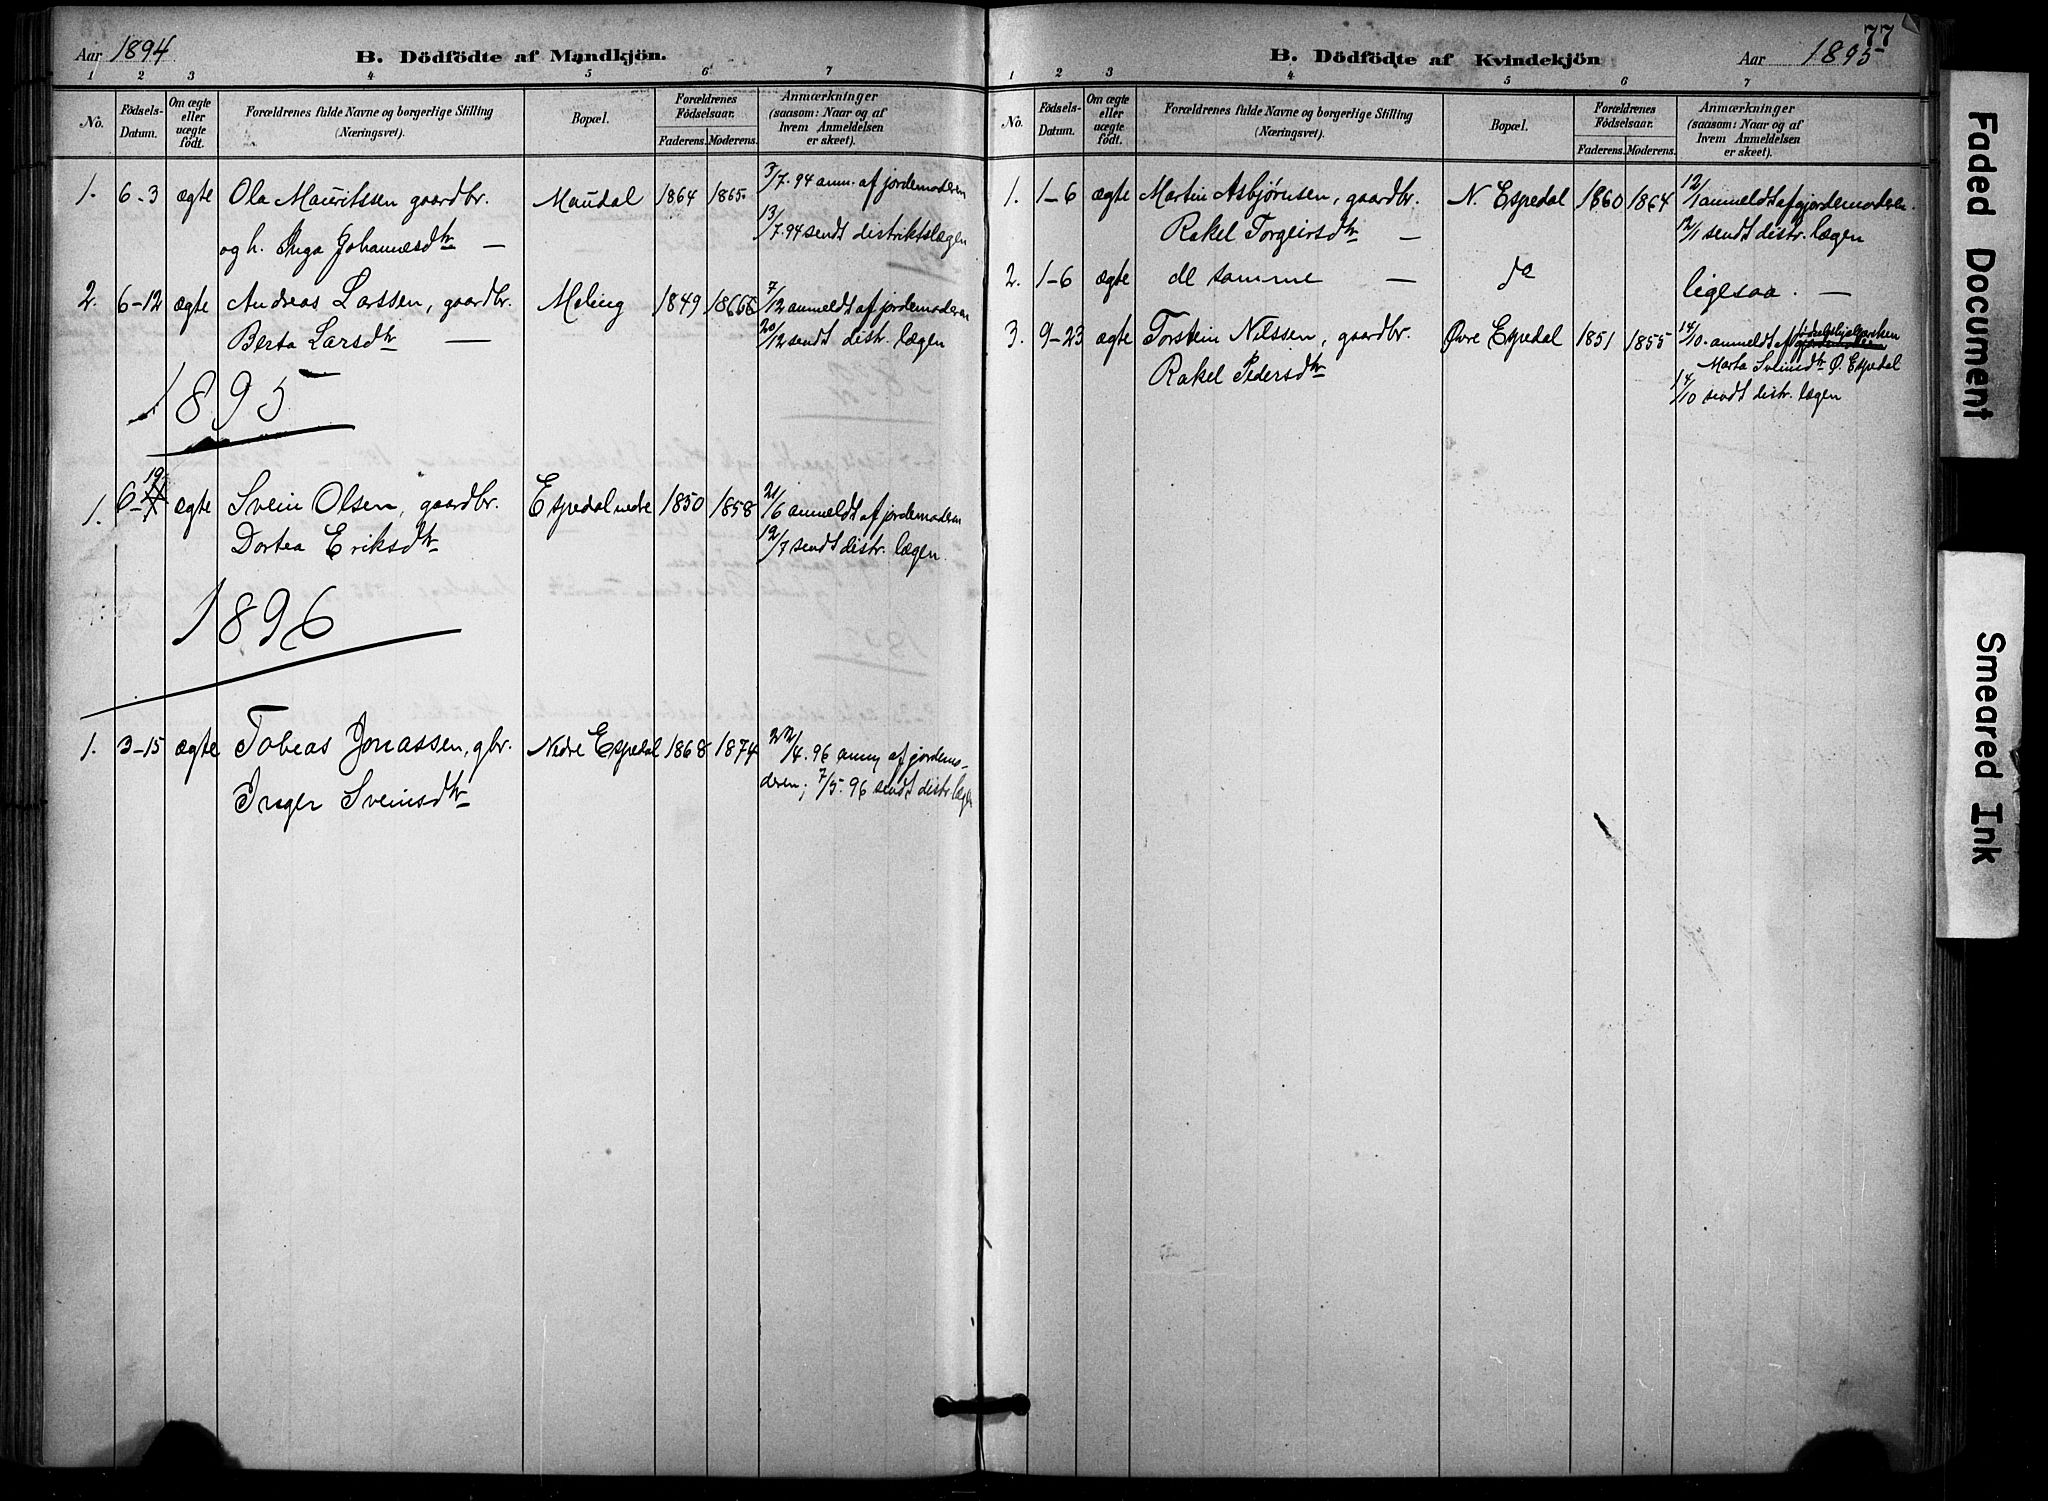 Aar 1894
B. Dödfödte af Mandkjön.
1 2 3 4 5 6 7
No.
Födsels-
Datum.
Om ægte
eller
uægte
födt.
Forældrenes fulde Navne og borgerlige Stilling
(Næringsvei).
Bopæl.
Forældrenes
Födselsaar.
Faderens. Moderens.
Anmærkninger
(saasom: Naar og af
hvem Anmeldelsen
er skeet).
1. 6-3 ægte Ola Mauritssen gaardbr. Maudal 1864 1865 3/7.94 anm. af jordemoderen
og h. Inga Johannesdtr — 13/7.94 sendt distriktslægen
2. 6-12 ægte Andreas Larssen, gaardbr. Meling 1849 1866 7/12 anmeldt af jordemoderen
Berta Larsdtr — 20/12 sendt distr. lægen
1895
1. 6-19 ægte Svein Olsen, gaardbr. Espedal nedre 1850 1858 21/6 anmeldt af jordemoderen
Dortea Eriksdtr 12/7 sendt distr. lægen
1896
1. 3-15 ægte Tobias Jonassen, gbr. Nedre Espedal 1868 1874 22/4.96 anm af jordemo-
Inger Sveinsdtr deren; 7/5.96 sendt distr lægen
77
B. Dödfödte af Kvindekjön
Aar 1895
1 2 3 4 5 6 7
No.
Födsels-
Datum.
Om ægte
eller
uægte
födt.
Forældrenes fulde Navne og borgerlige Stilling
(Næringsvei).
Bopæl.
Forældrenes
Födselsaar.
Faderens. Moderens.
Anmærkninger
(saasom: Naar og af
hvem Anmeldelsen
er skeet).
1. 1-6 ægte Martin Asbjørnsen, gaardbr. N. Espedal 1860 1864 12/1 anmeldt af gjordemoderen.
Rakel Torgeirsdtr — 12/1 sendt distr. lægen
2. 1-6 ægte de samme — do ligesaa. —
3. 9-23 ægte Torstein Nilssen, gaardbr. Øvre Espedal 1851 1855 14/10. anmeldt af fødselshjælpersken
Rakel Pedersdtr Marta Sveinsdtr Ø. Espedal
14/10 sendt distr. lægen
Faded Document
Smeared Ink